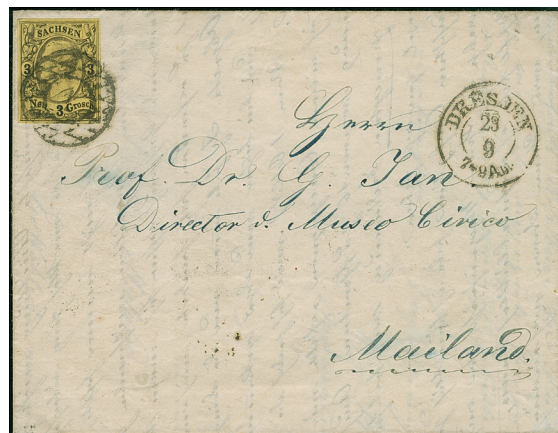 SACHSEN
3 3
Neu- 3 Grosch.
DRESDEN
23
9
Herrn
Prof. Dr. G. Jan
Director d. Museo Civico
Mailand.